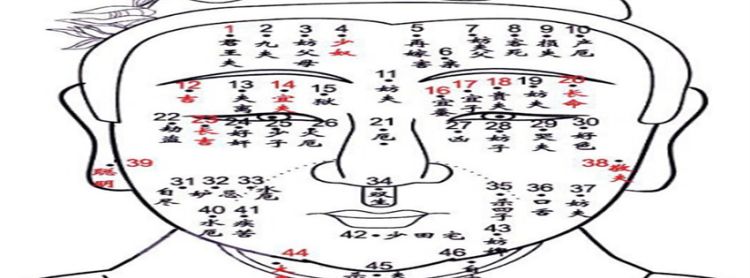 1 君王夫
2 九夫
3 妨父母
4 少奴
5 再嫁
6 害亲
7 妨父
8 客死
9 损夫
10 产厄
11 妨夫
12 吉
13 夫
14 宜夫
15 狱
16 宜蚕
17 宜子
18 贵夫
19 妨夫
20 长命
21 厄
22 劫盗
23 长吉
24 好奸
25 少子
26 夫厄
27 凶
28 妨子
29 哭夫
30 好色
31 自尽
32 妒忌
33 水厄
34 双生
35 杀四子
36 口舌
37 妨夫
38 敬夫
39 聪明
40 水厄
41 疾苦
42 少田宅
43 妨婢
44
45
46